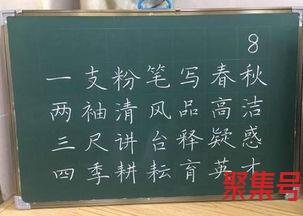 8
一支粉笔写春秋
两袖清风品高洁
三尺讲台释疑惑
四季耕耘育英才
聚集号